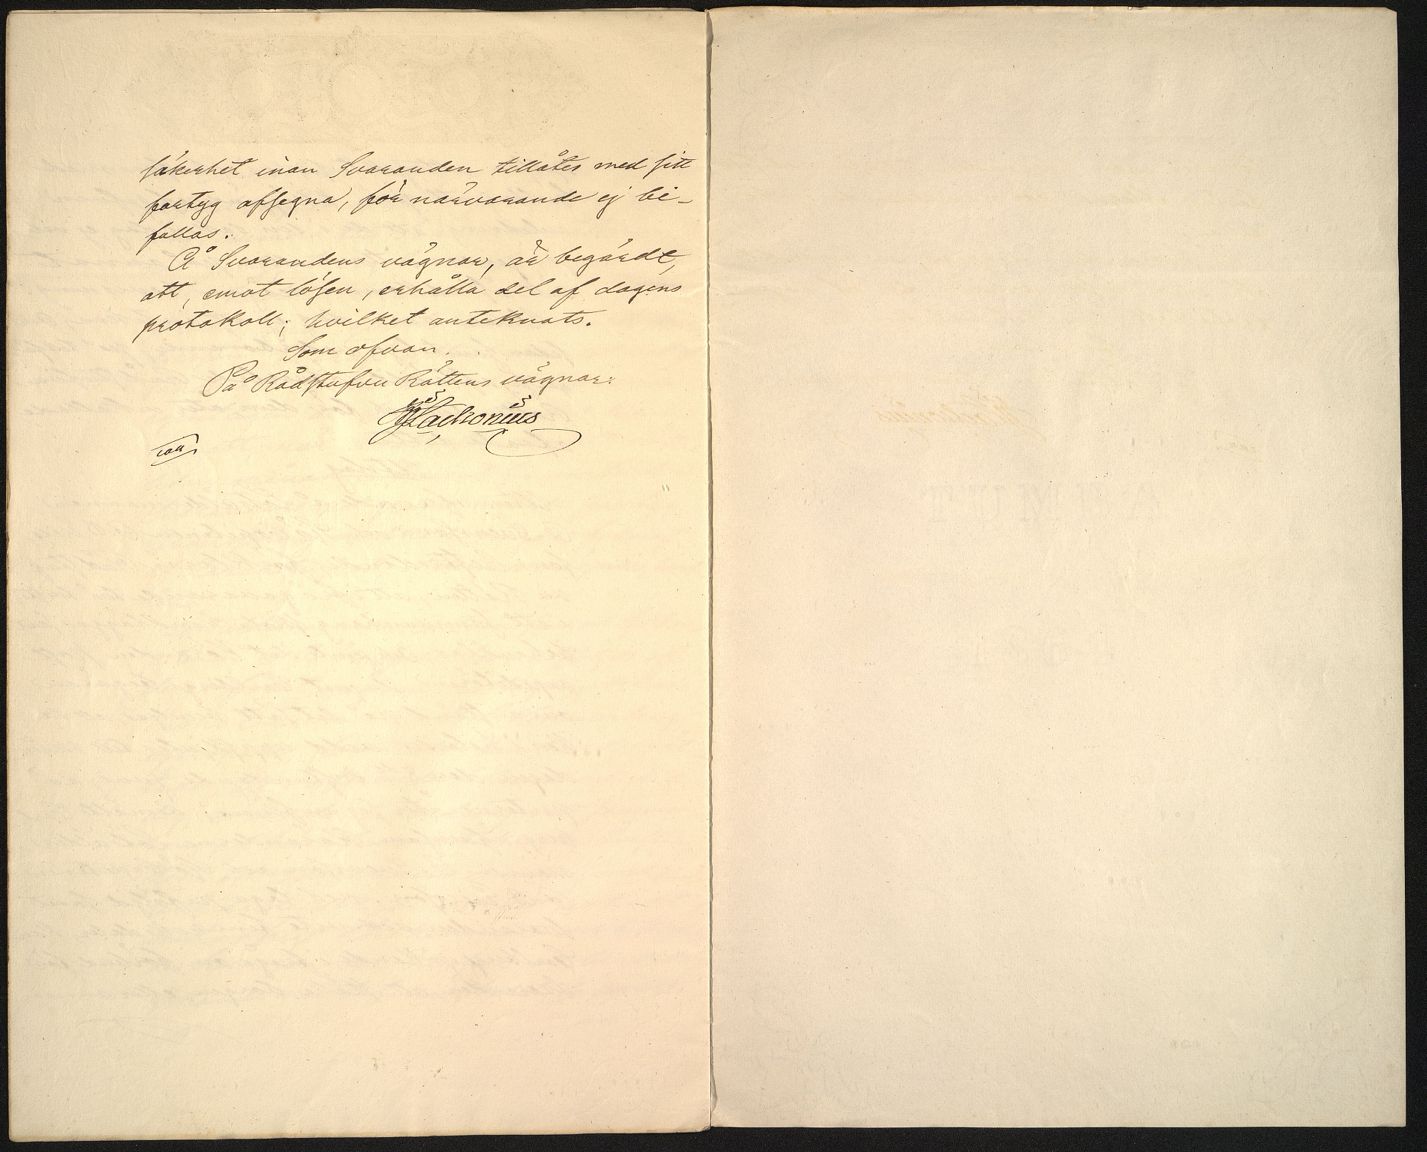 säkerhet inan Svaranden tillåtes med sitt
fartyg afsegna, för närvarande ej bi-
fallas.
Å Svarandens vägnar, är begärdt,
att, emot lösen, erhålla del af dagens
protokoll; hvilket anteknats.
Som ofvan.
På RådstufvuRättens vägnar: